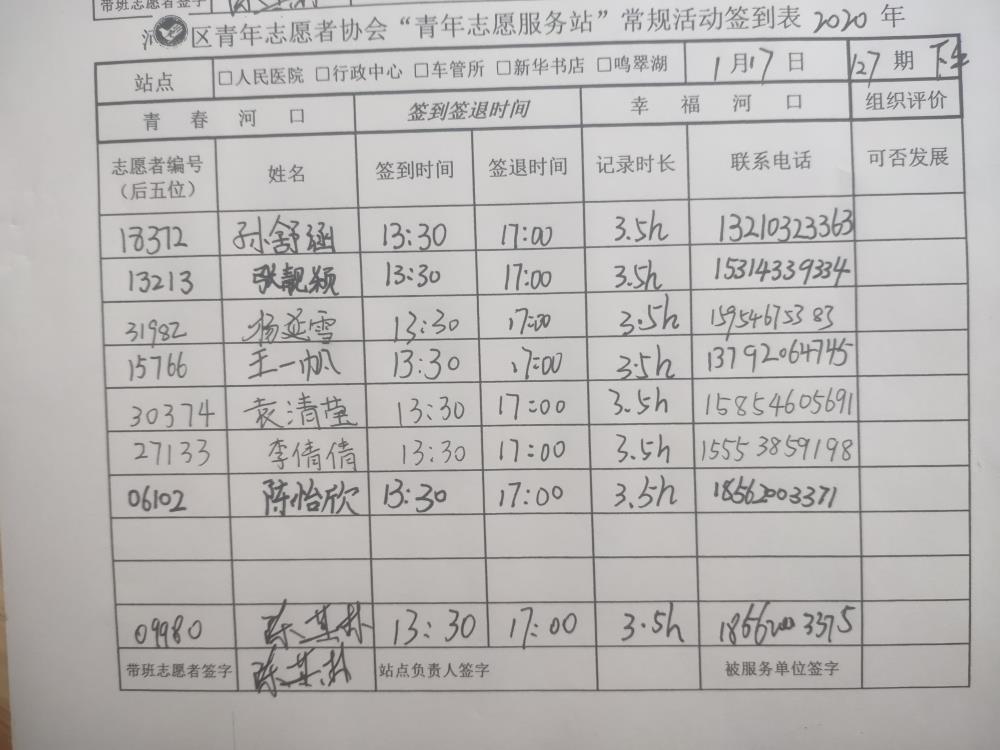 带班志愿者签字
河 区青年志愿者协会“青年志愿服务站”常规活动签到表 2020 年
站点 □人民医院 □行政中心 □车管所 □新华书店 □鸣翠湖 1月17日 127期 下午
青春河口 签到签退时间 幸福河口 组织评价
志愿者编号（后五位） 姓名 签到时间 签退时间 记录时长 联系电话 可否发展
18372 孙舒涵 13:30 17:00 3.5h 13210323363
13213 张靓颖 13:30 17:00 3.5h 15314339334
31982 杨延雪 13:30 17:00 3.5h 15954675383
15766 王一帆 13:30 17:00 3.5h 13792064745
30374 袁清莹 13:30 17:00 3.5h 15854605691
27133 李倩倩 13:30 17:00 3.5h 15553859198
06102 陈怡欣 13:30 17:00 3.5h 18562003371
09980 陈其林 13:30 17:00 3.5h 18662003375
带班志愿者签字 陈其林 站点负责人签字 被服务单位签字